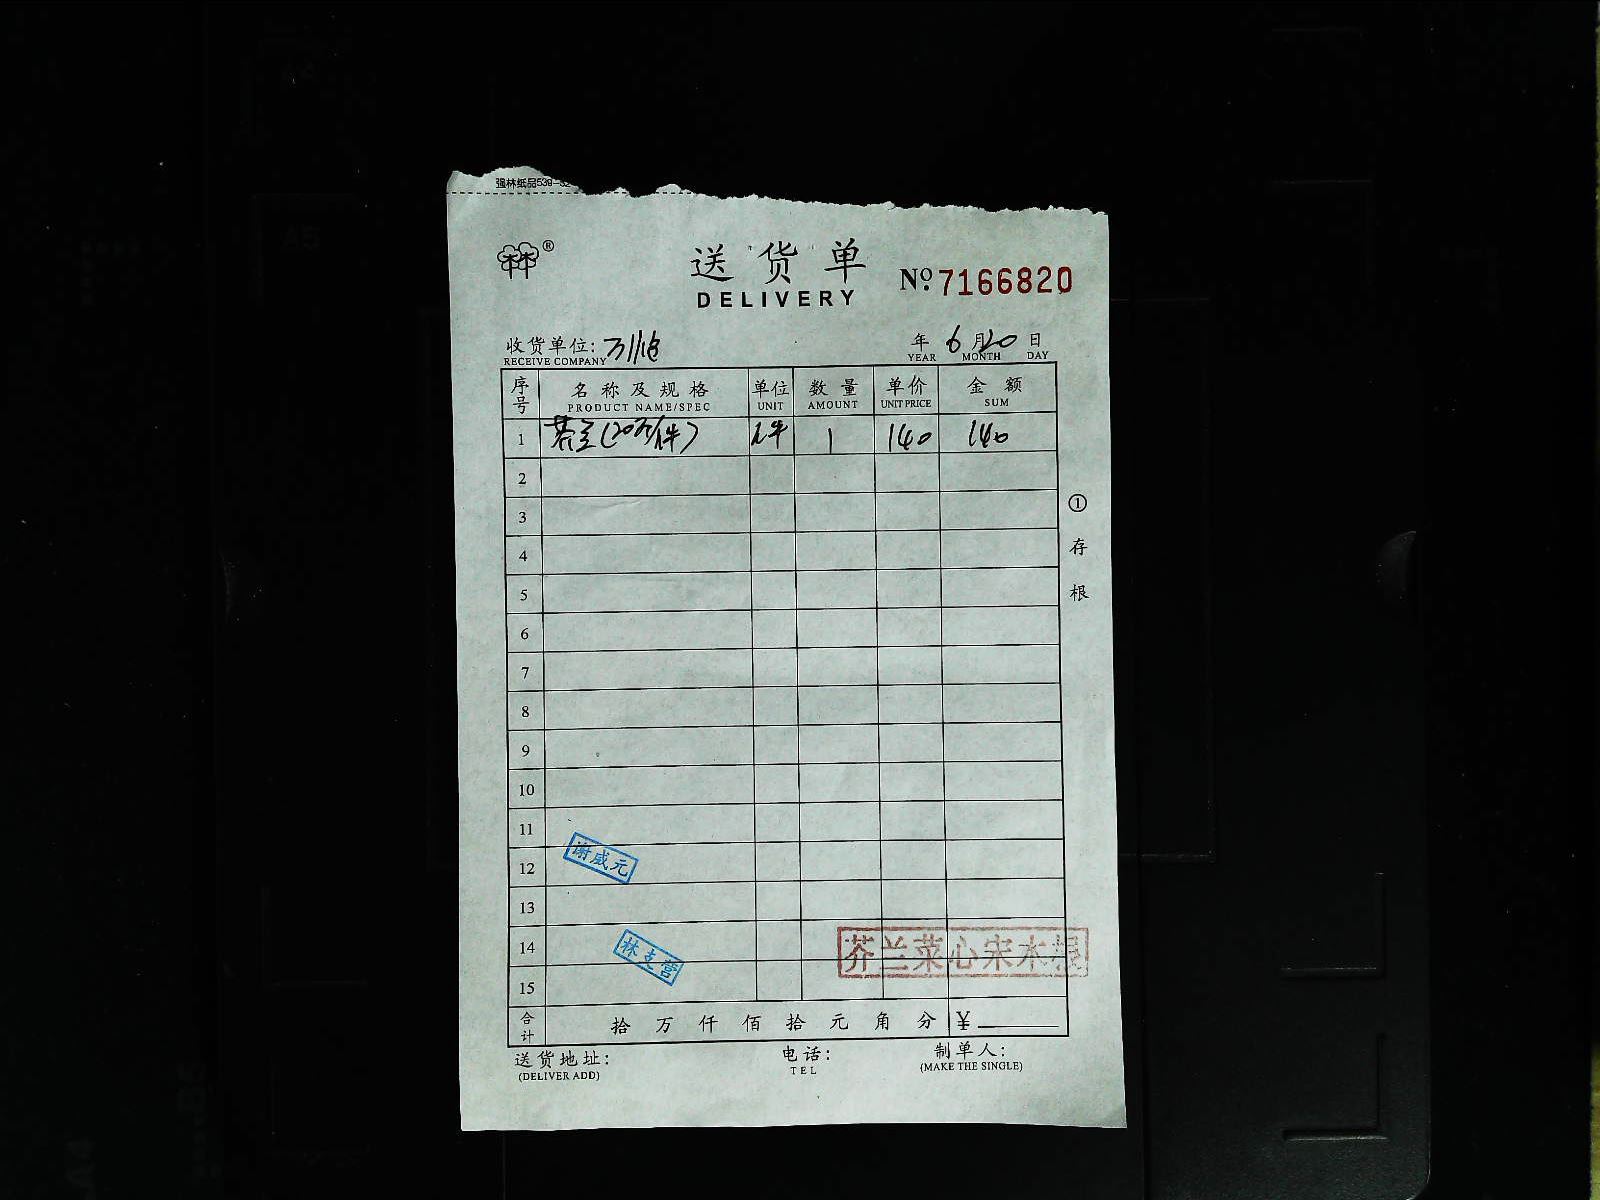 强林纸品539-52
林林®
送货单
DELIVERY
No. 7166820
收货单位:
RECEIVE COMPANY
年 6 月 20 日
YEAR MONTH DAY
序号 名称及规格 单位 数量 单价 金额
PRODUCT NAME/SPEC UNIT AMOUNT UNIT PRICE SUM
1 芥兰(20斤/件) 件 1 140 140
2
3
4
5
6
7
8
9
10
11
12
13
14
15
① 存根
谢咸元
林志营
芥兰菜心宋木根
合计 拾 万 仟 佰 拾 元 角 分 ¥
送货地址: 电话: 制单人:
(DELIVER ADD) TEL (MAKE THE SINGLE)